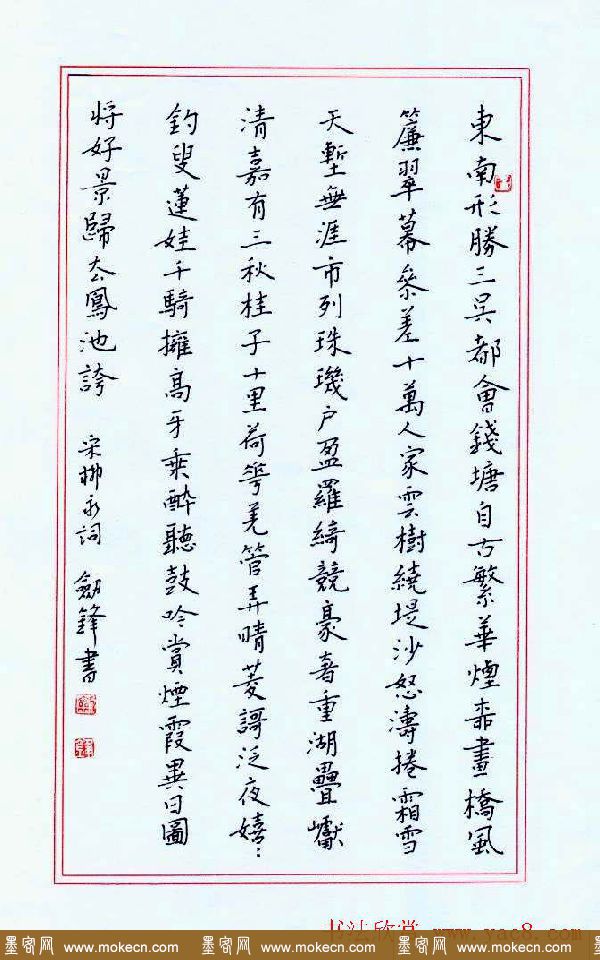 東南形勝三吳都會錢塘自古繁華煙柳畫橋風
簾翠幕參差十萬人家雲樹繞堤沙怒濤捲霜雪
天塹無涯市列珠璣户盈羅綺競豪奢重湖疊巘
清嘉有三秋桂子十里荷花羌管弄晴菱謌泛夜嬉::
釣叟蓮娃千騎擁高牙乘醉聽鼓吟賞煙霞異日圖
将好景歸去鳳池誇 宋柳永词 劍鋒書
书法欣赏 www.yac8.com
墨客网 www.mokecn.com 墨客网 www.mokecn.com 墨客网 www.mokecn.com